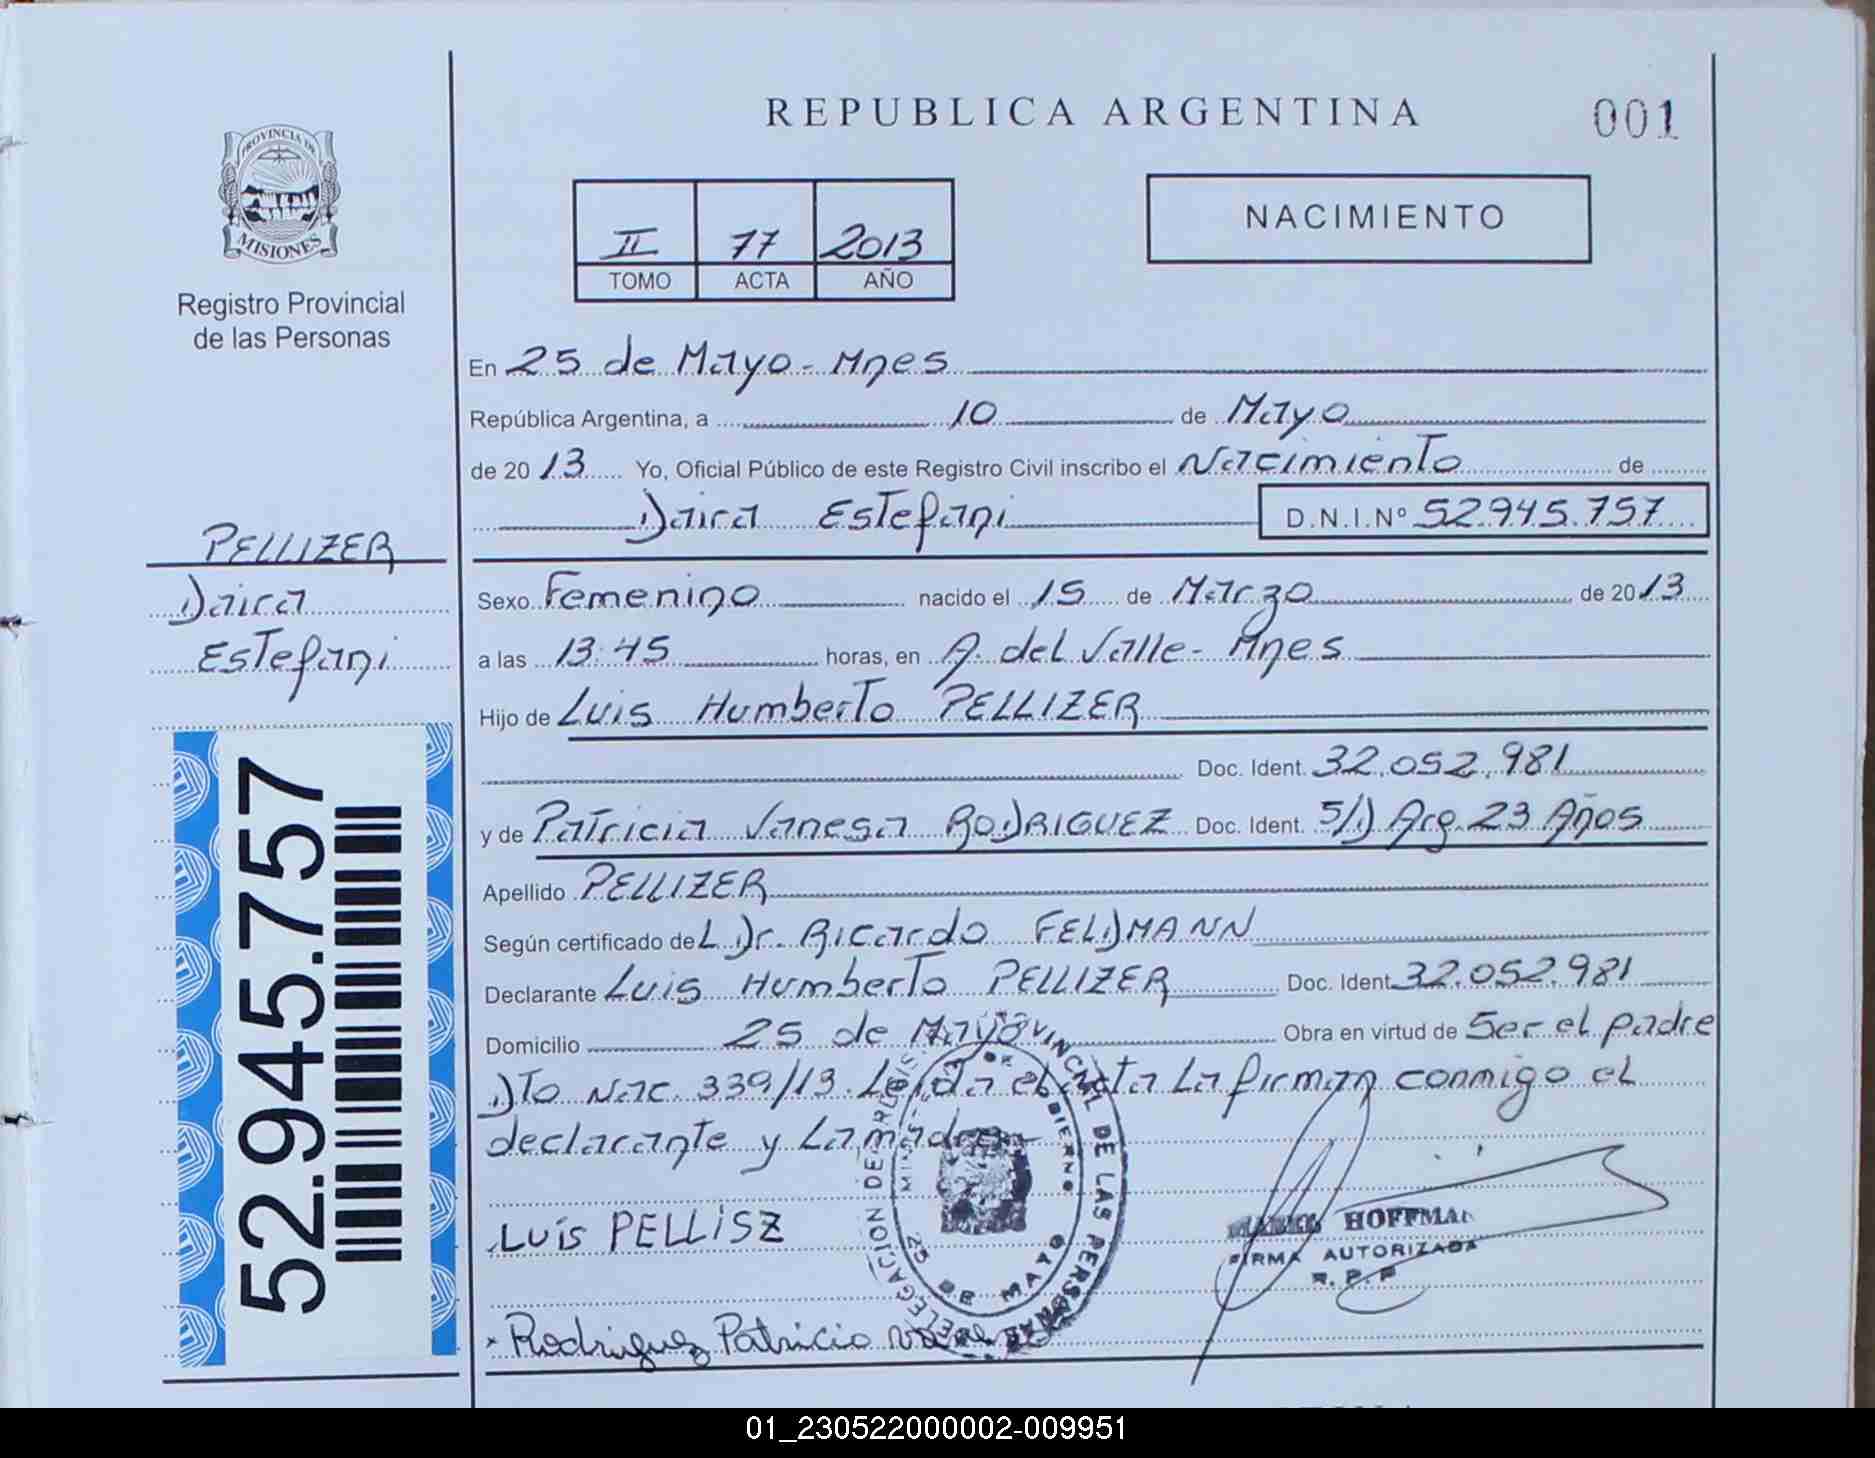 REPUBLICA ARGENTINA
001
PROVINCIA DE
MISIONES
Registro Provincial
de las Personas
II 77 2013
TOMO ACTA AÑO
NACIMIENTO
En 25 de Mayo - Mnes
República Argentina, a 10 de Mayo
de 20 13 Yo, Oficial Público de este Registro Civil inscribo el Nacimiento de
Daira Estefani D.N.I.Nº 52.945.757
PELLIZER
Daira
Estefani
Sexo Femenino nacido el 15 de Marzo de 20 13
a las 13:45 horas, en A. del Valle - Mnes
Hijo de Luis Humberto PELLIZER
Doc. Ident. 32.052.981
y de Patricia Vanesa RODRIGUEZ Doc. Ident. S/D Arg. 23 Años
Apellido PELLIZER
Según certificado del Dr. Ricardo FELDMANN
Declarante Luis Humberto PELLIZER Doc. Ident. 32.052.981
Domicilio 25 de Mayo Obra en virtud de Ser el padre
Dto Nac. 339/13. Leida el acta La firman conmigo el
declarante y La madre
52.945.757
LUIS PELLISZ
DELEGACION DE PROVINCIAL DE LAS PERSONAS
DE GOBIERNO
25 DE MAYO
HOFFMAN
FIRMA AUTORIZADA
R. P. P
Rodriguez Patricia
01_230522000002-009951